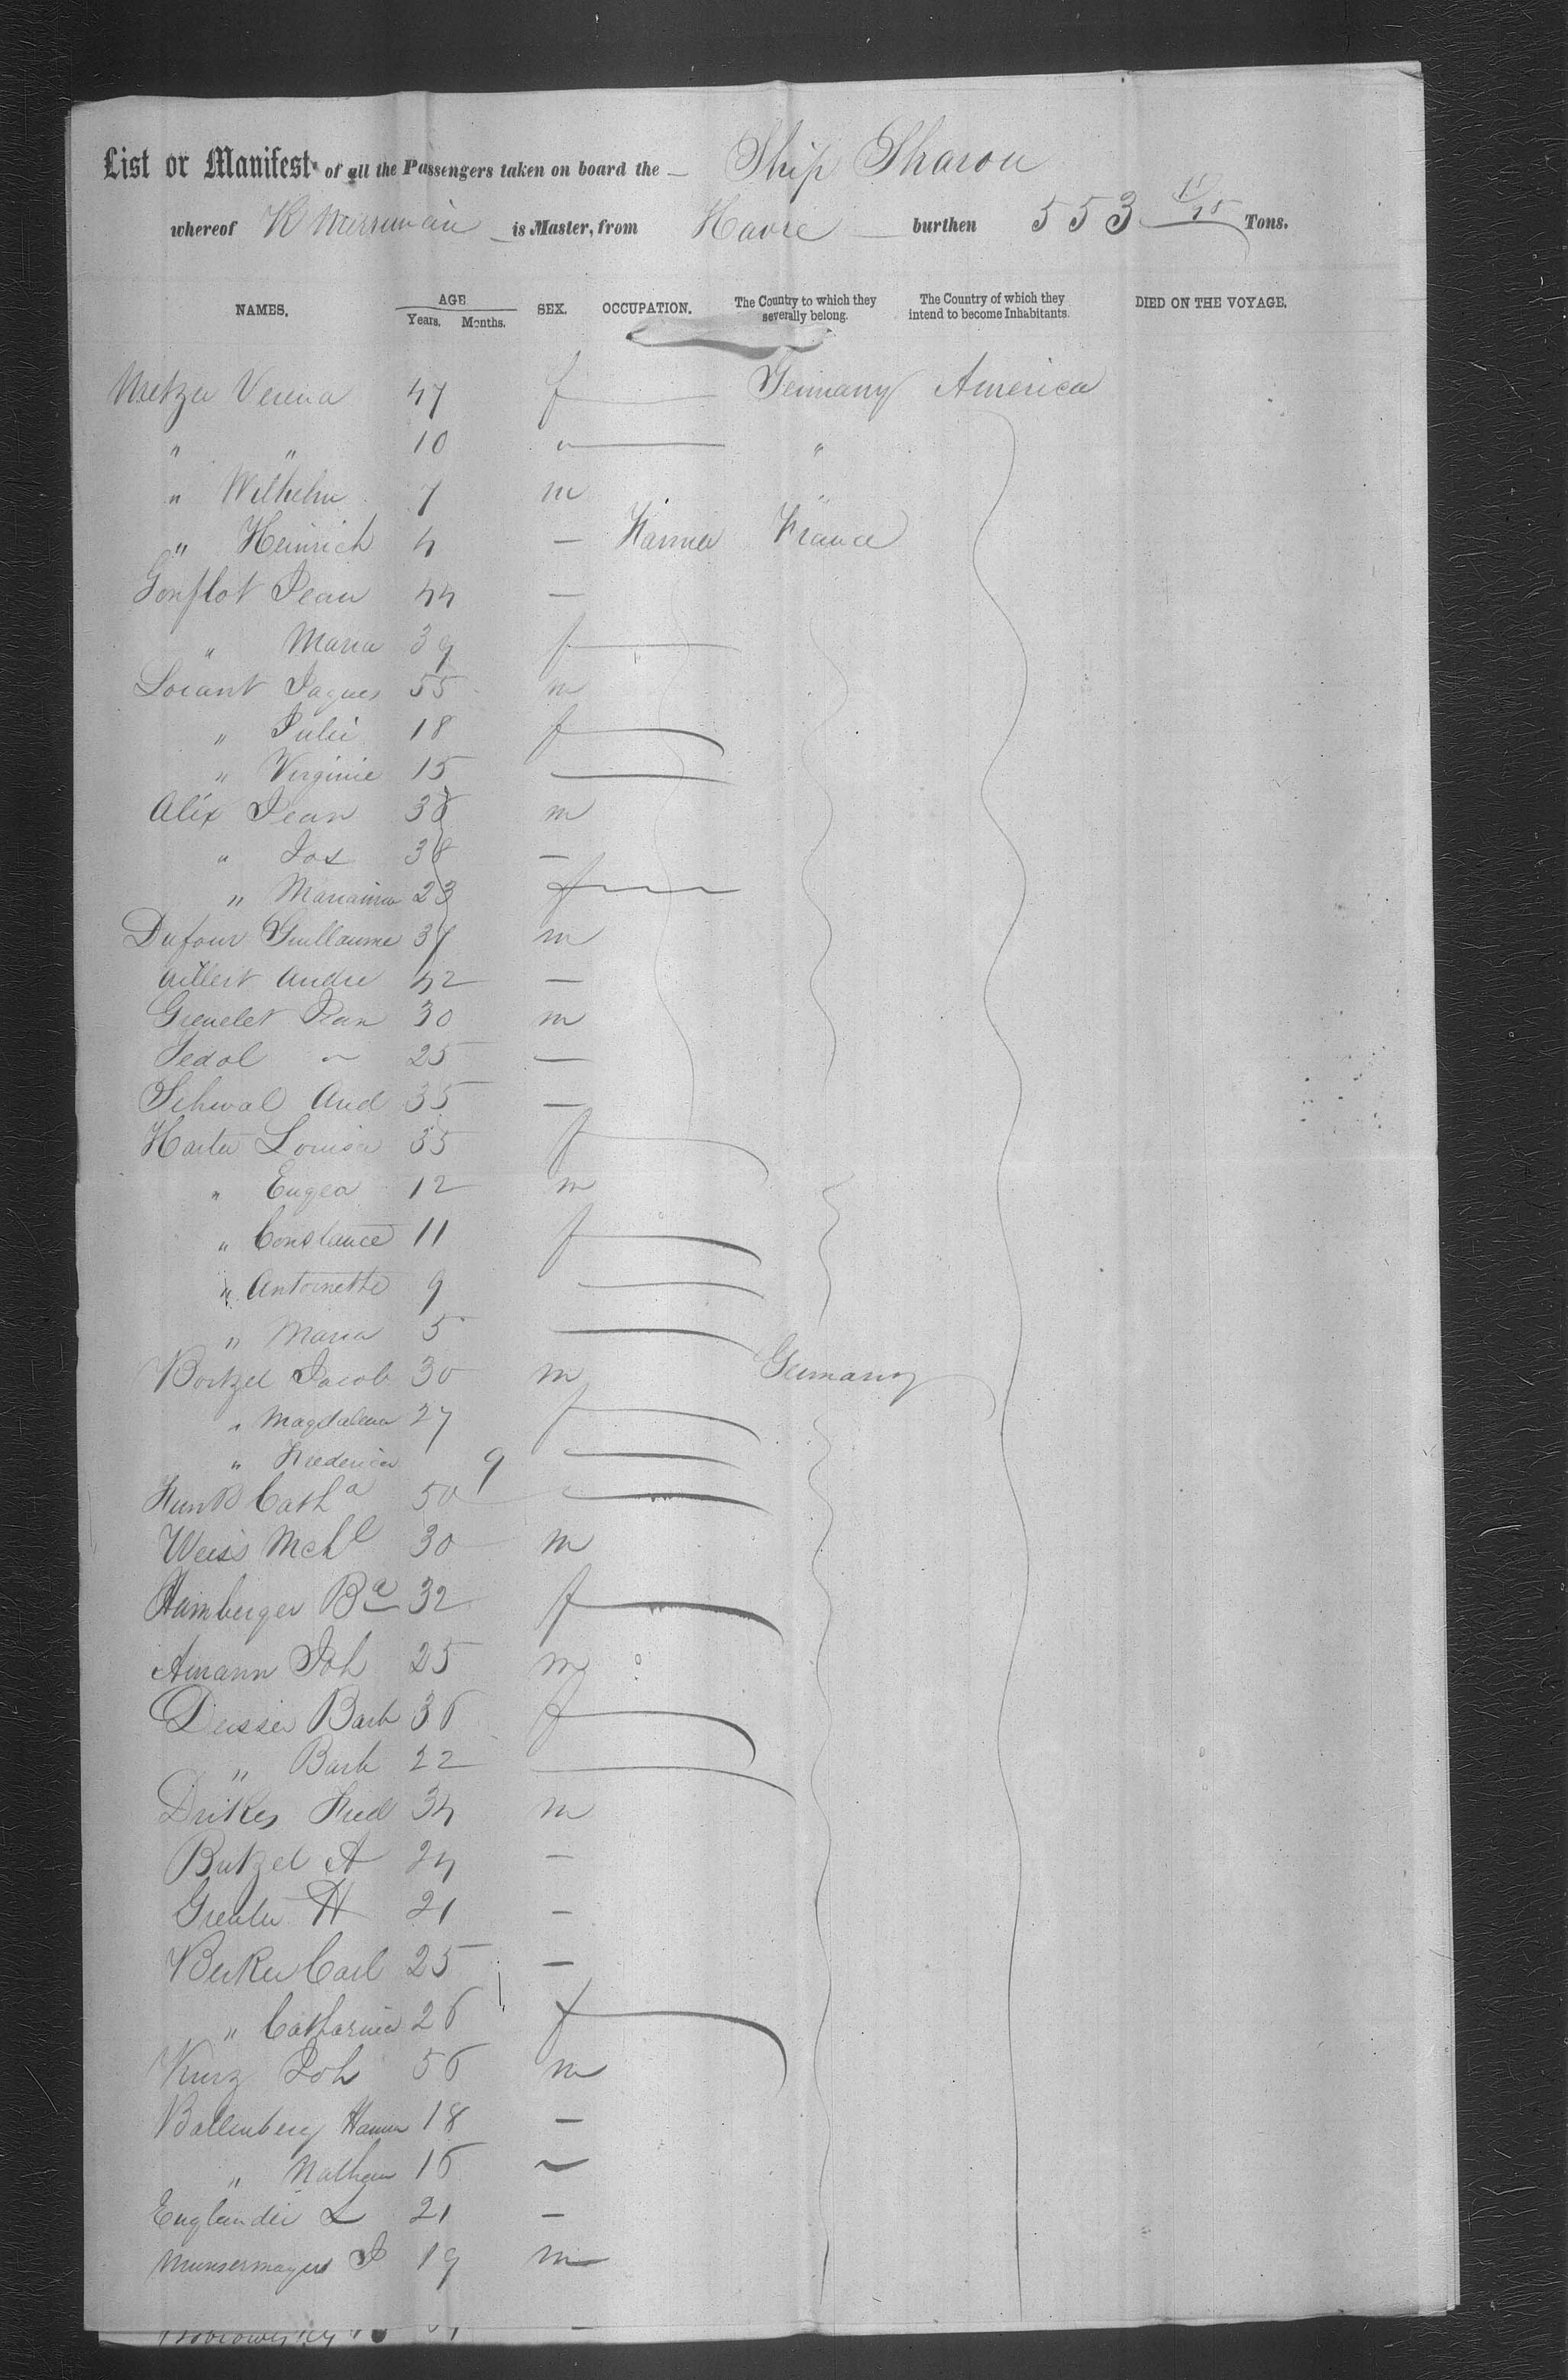 List or Manifest of all the Passengers taken on board the — Ship Sharon
whereof K Merriman is Master, from Havre burthen 553 /95 Tons.
NAMES. AGE Years. Months. SEX. OCCUPATION. The Country to which they severally belong. The Country of which they intend to become Inhabitants. DIED ON THE VOYAGE.
Metzer Verena 47 f — Germany America
" " 10 " — "
" Wilhelm 7 m "
" Heinrich 4 — Farmer France
Gonflot Jean 44 —
" Maria 39 f
Lorant Jaques 55 m
" Julie 18 f
" Virginie 15 —
Alix Jean 38 m
" Jos 38 —
" Marianna 23 f
Dufour Guillaume 37 m
Aillert Andre 42 —
Grenelet Jean 30 m
Fedol " 25 —
Schwal And 35 —
Harter Louisa 35 f
" Eugea 12 m
" Constance 11 f
" Antoinette 9 —
" Maria 5 —
Bortzel Jacob 30 m Germany
" Magdalena 27 f
" Frederica 9 —
Funk Catha 50 —
Weiss Mchl 30 m
Hamberger Ba 32 f
Amann Joh 25 m
Deisser Barb 36 f
" Barb 22 —
Drikes Fred 34 m
Butzel A 24 —
Greater H 21 —
Becker Carl 25 —
" Catharina 26 f
Kurz Joh 56 m
Ballenberg Hanna 18 —
" Nathan 16 ~
Englander L 21 —
Munsermayer J 19 m
—